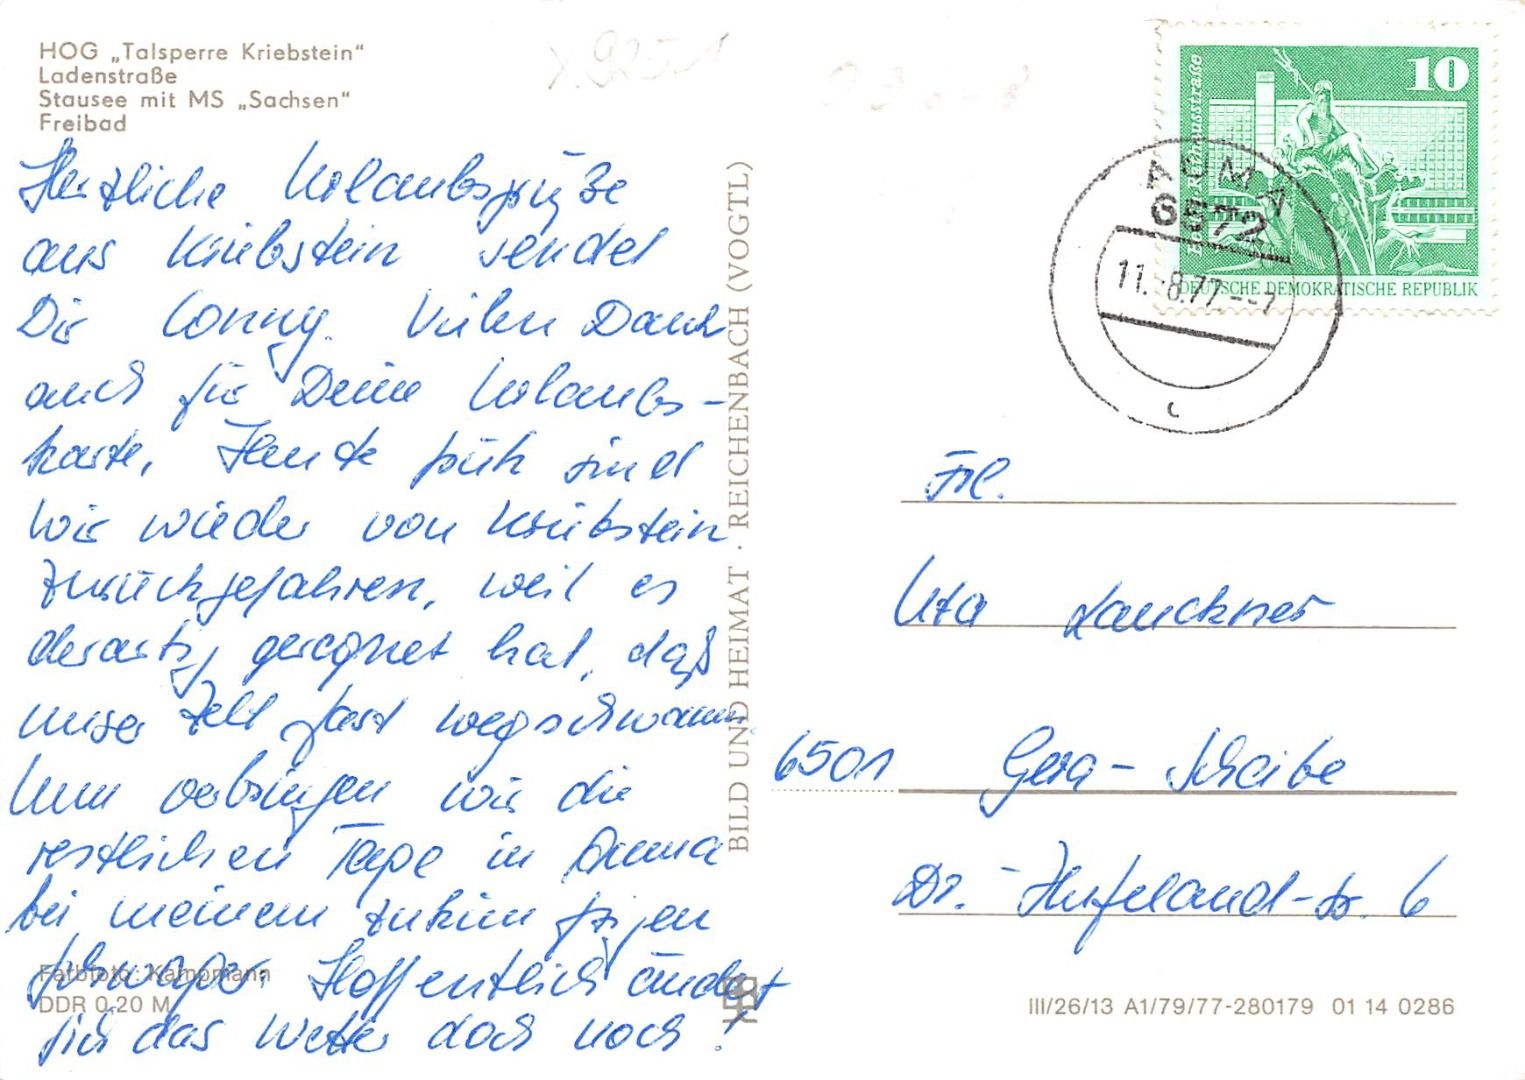 HOG „Talsperre Kriebstein“
Ladenstraße
Stausee mit MS „Sachsen“
Freibad
Herzliche Urlaubsgrüße
aus Kriebstein sendet
Dir Conny. Vielen Dank
auch für Deine Urlaubs-
karte. Heute früh sind
wir wieder von Kriebstein
zurückgefahren, weil es
derartig geregnet hat, daß
unser Zelt fast wegschwamm.
Nun verbringen wir die
restlichen Tage in Auma
bei meinem zukünftigen
Schwager. Hoffentlich ändert
sich das Wetter doch noch!
Farbfoto: Kampmann
DDR 0,20 M
BILD UND HEIMAT · REICHENBACH (VOGTL)
10
DEUTSCHE DEMOKRATISCHE REPUBLIK
AUMA
6572
11.-8.77.--7
c
Frl.
Uta Lauckner
6501 Gera-Scheibe
Dr.-Hufeland-Str. 6
III/26/13 A1/79/77-280179 01 14 0286